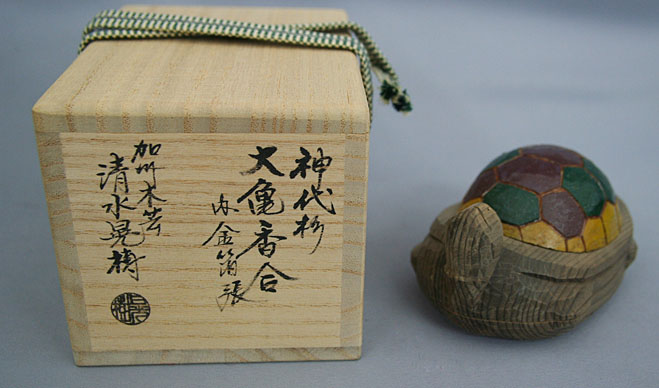 神代杉
大亀香合
内金箔張
加州木芸
清水晃樹